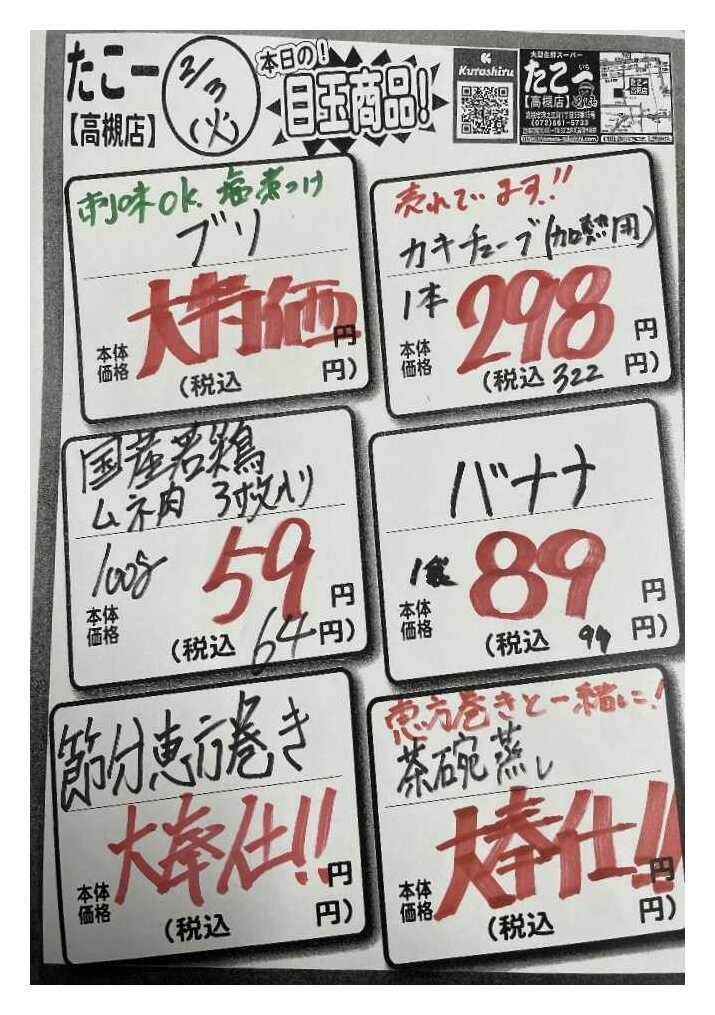 たこー
【高槻店】
2/3
(火)
本日の!
目玉商品!
Kurashiru
大型生鮮スーパー
たこー
いち
【高槻店】
(072)661-5733
たこー
高槻店
刺味OK.塩煮つけ
ブリ
大特価
円
本体
価格
(税込 円)
売れています!!
カキチューブ(加熱用)
1本
298
円
本体
価格
(税込 322 円)
国産若鶏
ムネ肉 3枚入り
100g
59
円
本体
価格
(税込 64 円)
バナナ
1袋
89
円
本体
価格
(税込 円)
節分恵方巻き
大奉仕!!
円
本体
価格
(税込 円)
恵方巻きと一緒に!
茶碗蒸し
大奉仕!!
円
本体
価格
(税込 円)